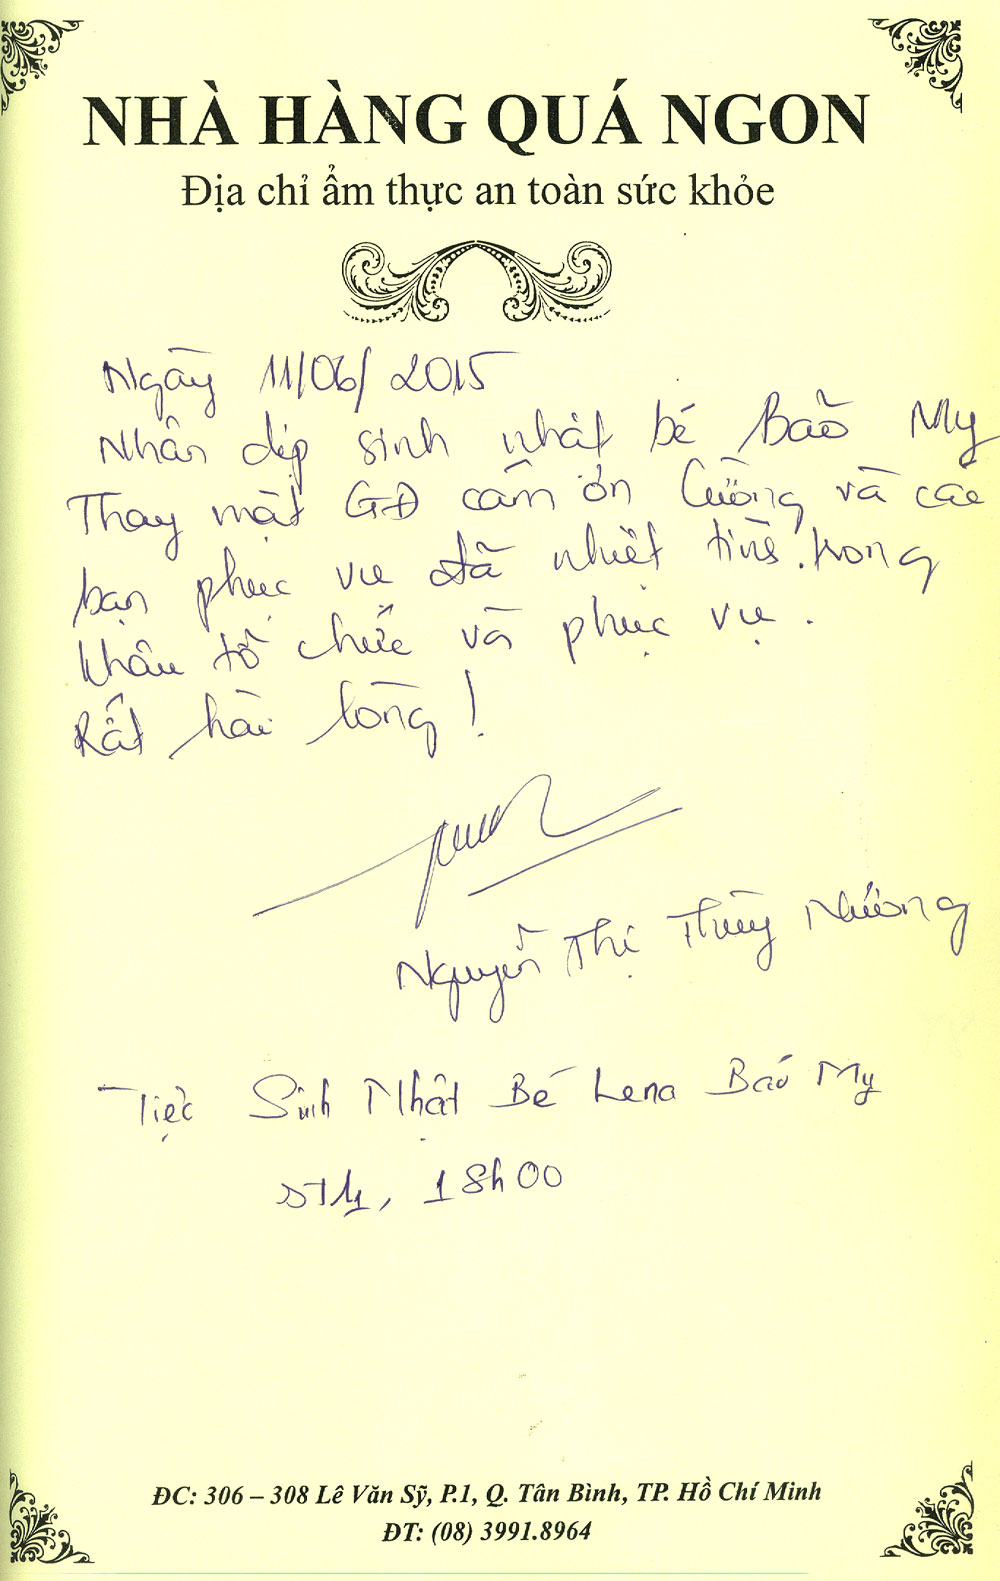 NHÀ HÀNG QUÁ NGON
Địa chỉ ẩm thực an toàn sức khỏe
Ngày 11/06/2015
Nhân dịp sinh nhật bé Bảo My
Thay mặt GĐ cảm ơn Cường và các
bạn phục vụ đã nhiệt tình trong
khâu tổ chức và phục vụ.
Rất hài lòng!
Nguyễn Thị Thùy Nương
Tiệc Sinh Nhật Bé Lena Bảo My
18h00
ĐC: 306 – 308 Lê Văn Sỹ, P.1, Q. Tân Bình, TP. Hồ Chí Minh
ĐT: (08) 3991.8964